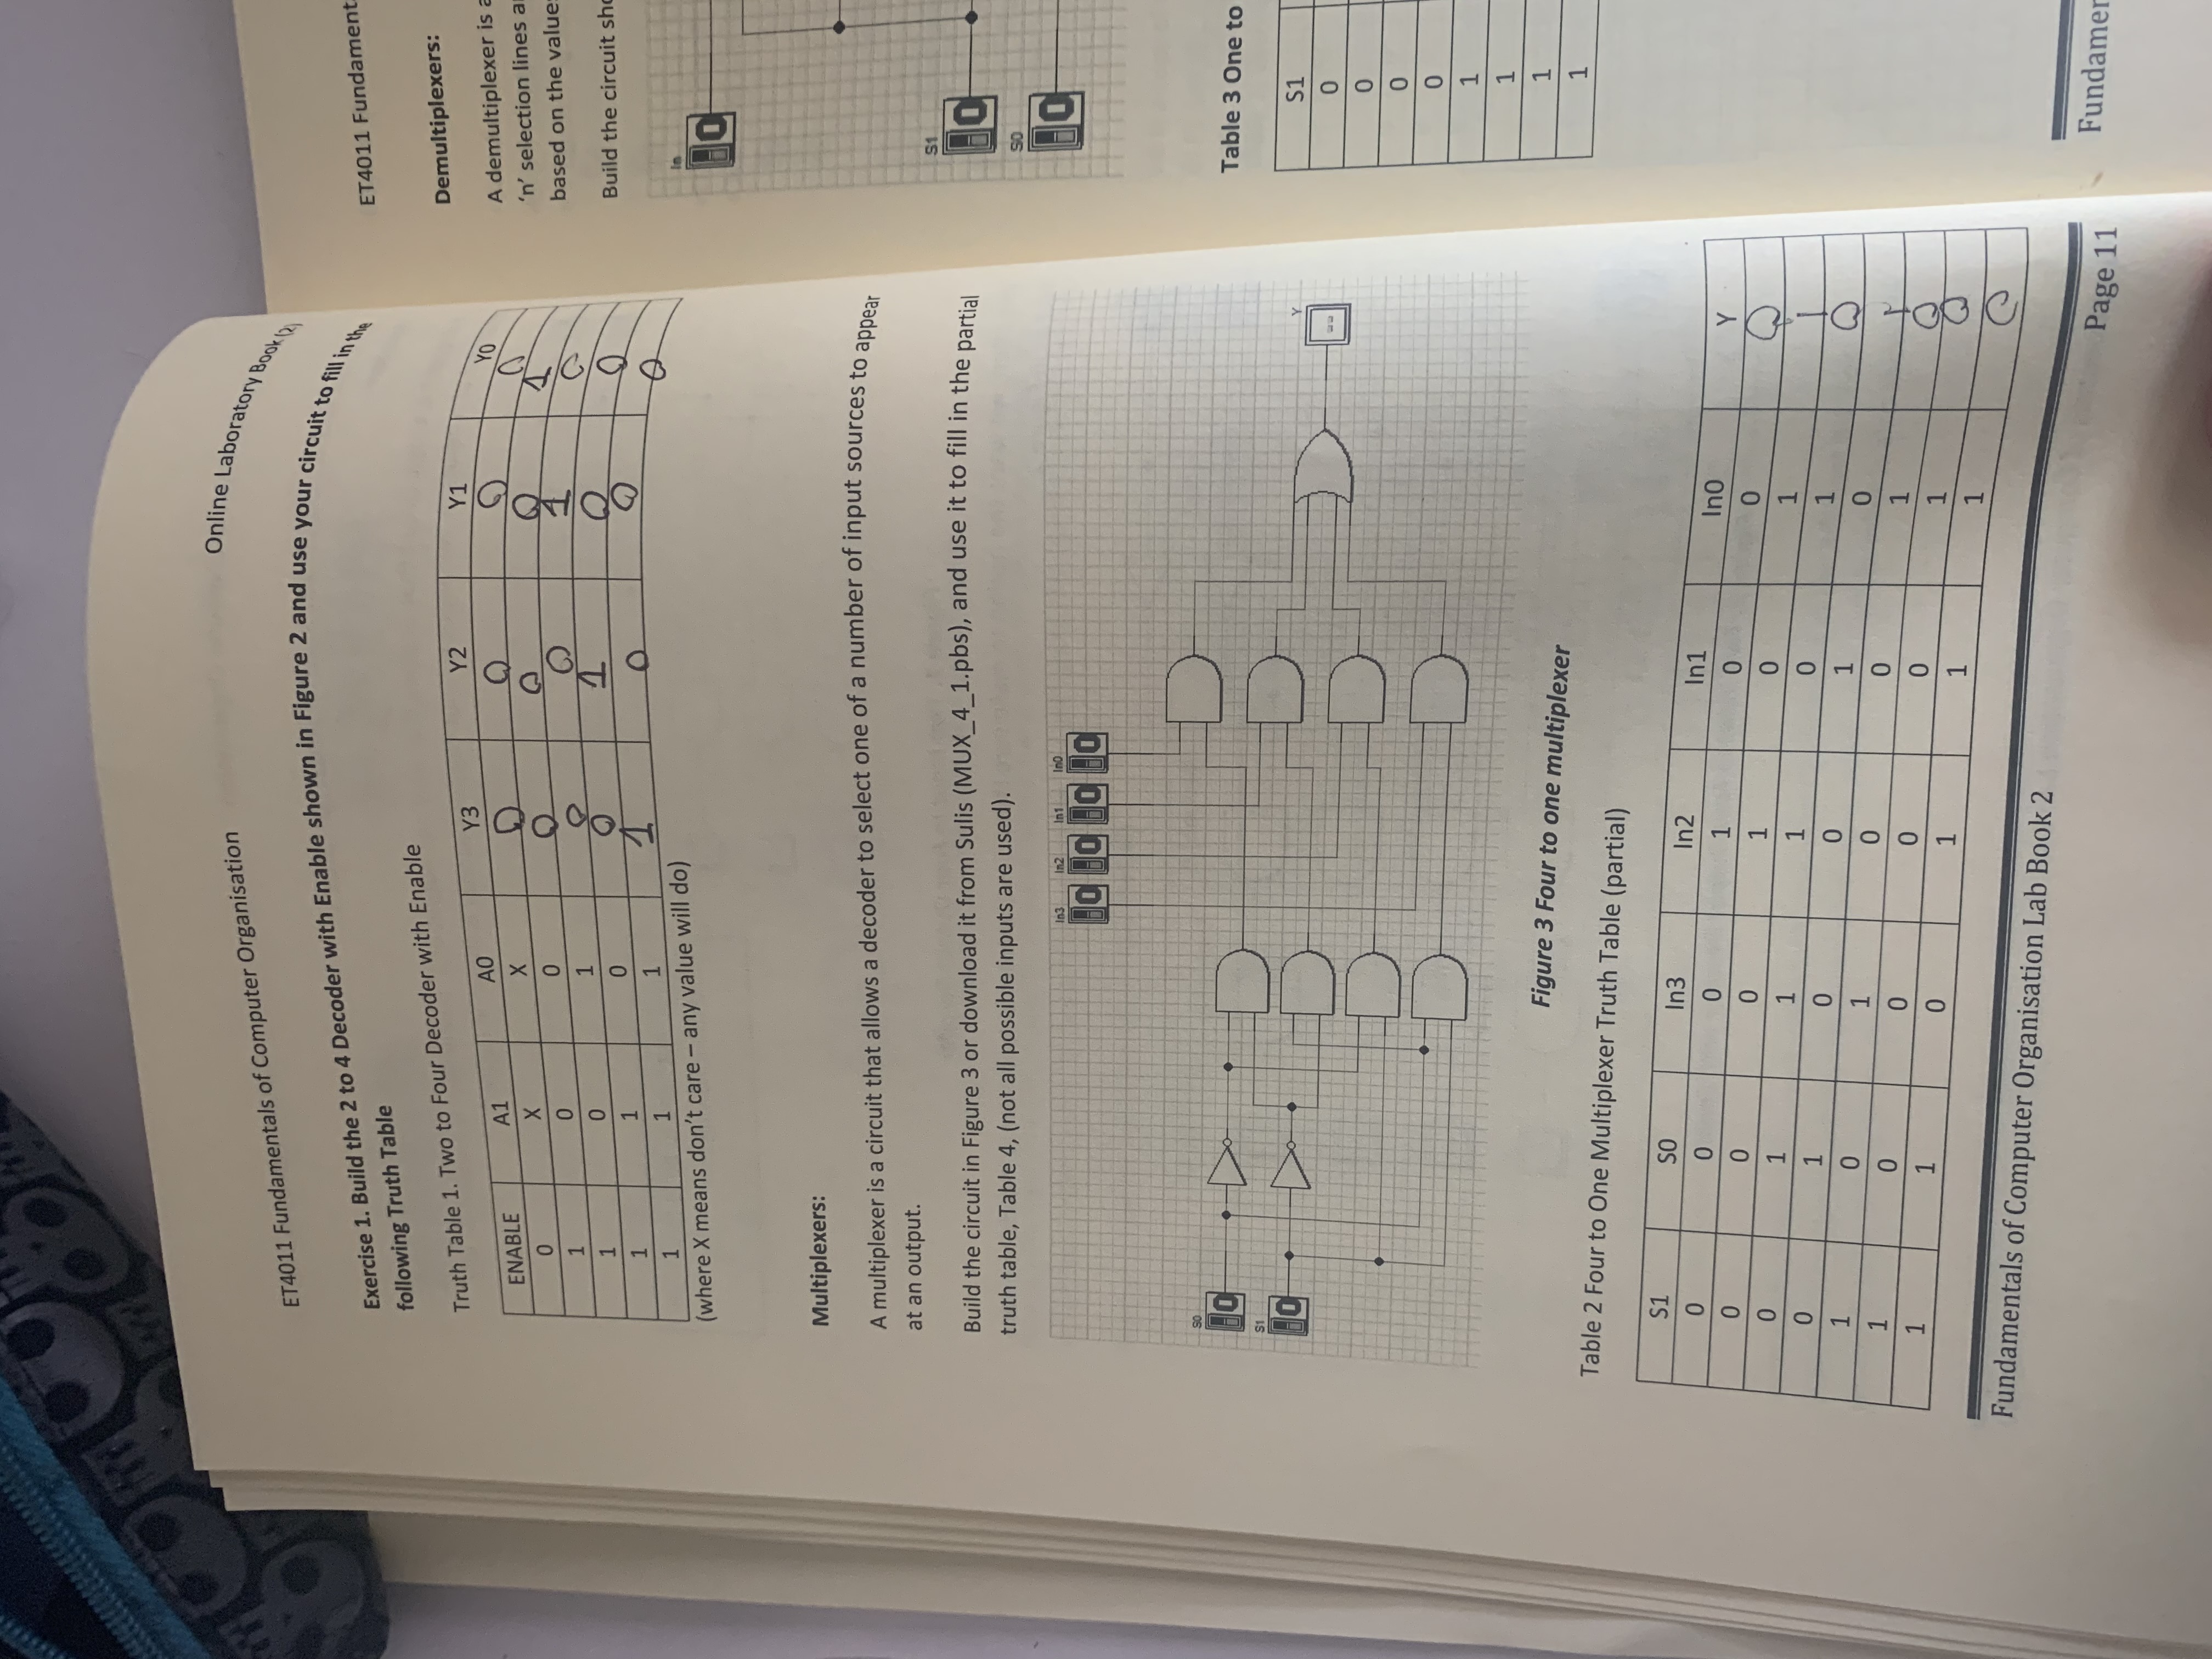 ET4011 Fundamentals of Computer Organisation
Online Laboratory Book (2)
Exercise 1. Build the 2 to 4 Decoder with Enable shown in Figure 2 and use your circuit to fill in the
following Truth Table
Truth Table 1. Two to Four Decoder with Enable
ENABLE A1 A0 Y3 Y2 Y1 Y0
0 X X 0 0 0 0
1 0 0 0 0 0 1
1 0 1 0 0 1 0
1 1 0 0 1 0 0
1 1 1 1 0 0 0
(where X means don't care – any value will do)
Multiplexers:
A multiplexer is a circuit that allows a decoder to select one of a number of input sources to appear
at an output.
Build the circuit in Figure 3 or download it from Sulis (MUX_4_1.pbs), and use it to fill in the partial
truth table, Table 4, (not all possible inputs are used).
In3 In2 In1 In0
0 0 0 0
S0
0
S1
0
Y
--
Figure 3 Four to one multiplexer
Table 2 Four to One Multiplexer Truth Table (partial)
S1 S0 In3 In2 In1 In0 Y
0 0 0 1 0 0 0
0 0 0 1 0 1 1
0 1 1 1 0 1 0
0 1 0 0 1 0 1
1 0 1 0 0 1 0
1 0 0 0 0 1 0
1 1 0 1 1 1 0
Fundamentals of Computer Organisation Lab Book 2
Page 11
ET4011 Fundament
Demultiplexers:
A demultiplexer is a
'n' selection lines a
based on the value
Build the circuit sh
In
0
S1
0
S0
0
Table 3 One to
S1
0
0
0
0
1
1
1
1
Fundamen